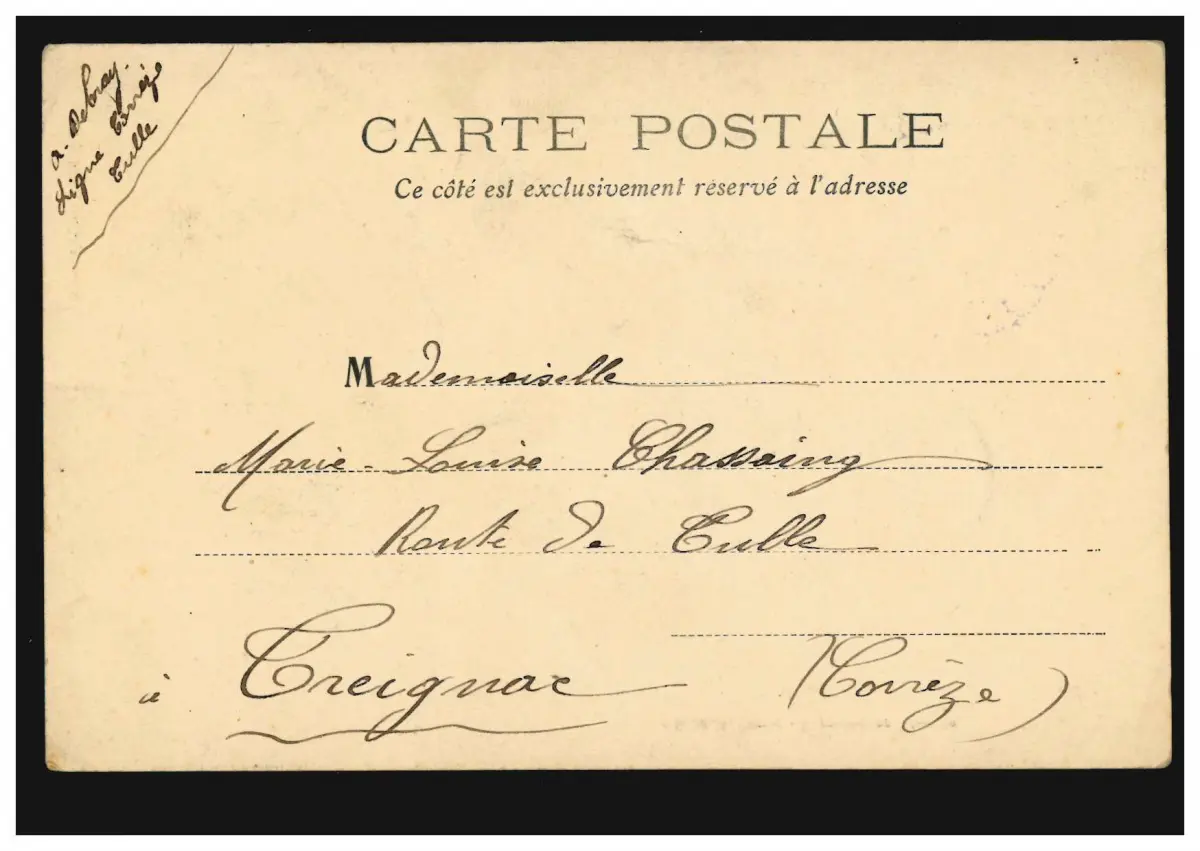 A. Delmay.
Ligne Corrèze
Tulle
CARTE POSTALE
Ce côté est exclusivement réservé à l'adresse
Mademoiselle
Marie-Louise Chassaing
Route de Tulle
à Treignac (Corrèze)